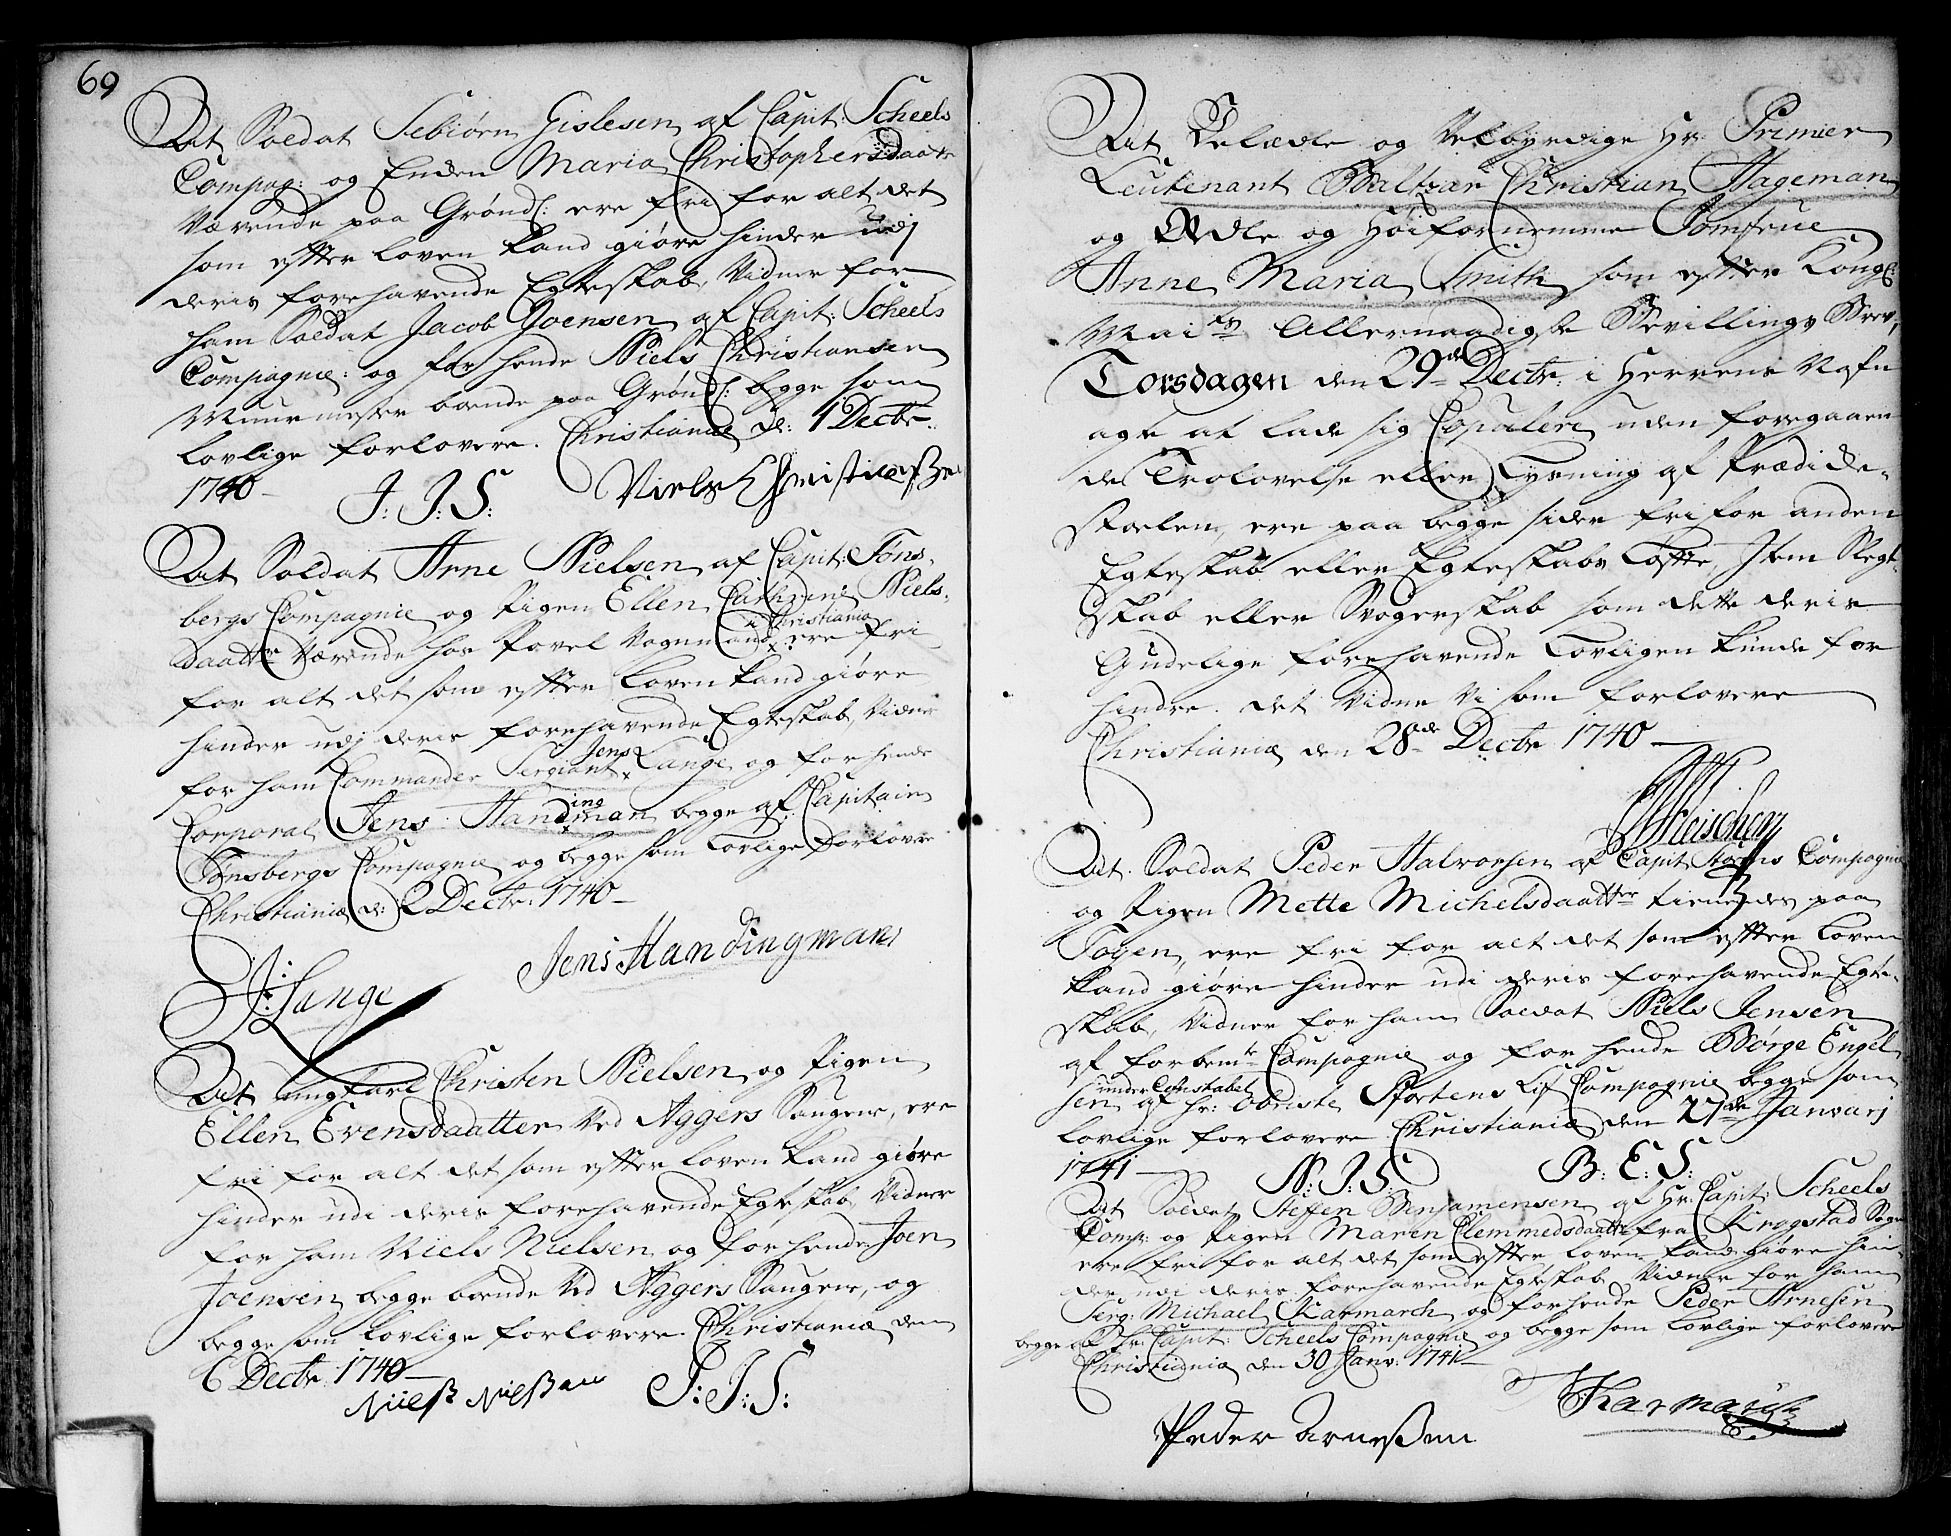 69
At Soldat Sebiørn Gislesen af Capit: Scheels
Compag: og Enden Maria Christophersdaatr
Værende paa Grønd: ere fri for alt det
som effter loven kand giøre hinder udj
deris forehavende Egteskab, Vidner for
ham Soldat Jacob Joensen af Capit: Scheels
Compagnie: og for hende Niels Christiansen
Muurmester boende paa Grønd: begge som
lovlige forlovere. Christianiæ d: 1 Decbr.
1740
J: J: S: Niels Christiansßen
At Soldat Arne Nielsen af Capit: Tøns-
bergs Compagnie og Pigen Ellen Cathrine Niels-
daatter Værende hos Povel Vognmand i Christiania ere fri
for alt det som effter loven kand giøre
hinder udj deris forehavende Egteskab, Vidner
for ham Commander Sergiant Jens Lange og for hende
Corporal Jens Handingman begge af Capitain
Tønsbergs Compagnie og begge som lovlige forlovere
Christianiæ d: 2 Decbr. 1740
J: Lange Jens Handingman
At ungkarl Christen Nielsen og Pigen
Ellen Evensdaatter Ved Aggers Saugene, ere
fri for alt det som effter loven kand giøre
hinder udi deris forehavende Egteskab, Vidner
for ham Niels Nielsen og for hende Joen
Joensen begge boende Ved Aggers Saugene, og
begge som lovlige forlovere. Christianiæ den
6 Decbr. 1740
Nielß Nielßen J: J: S:
At Velædle og Velbyrdige Hr: Primier
Leutenant Baltzar Christian Hageman
og Ædle og Høifornemme Jomfrue
Anne Maria Smith som effter Kongl:
Maits Allernaadigste Bevillings Brev,
Torsdagen den 29de Decbr: i Herrens Nafn
agte at lade sig Copulere uden foregaaen
de Trolovelse eller Lysning af Prædicke-
stoelen, ere paa begge sider fri for anden
Egteskab eller Egteskabs Løffte, Item Slegt-
skab eller Svogerskab som dette deris
Gudelige forehavende lovligen kunde for
hindre. det Vidner Vi som forlovere
Christianiæ den 28de Decbr 1740
Fleischer
At Soldat Peder Halvorsen af Capit Storms Compagnie
og Pigen Mette Michelsdaatter tienendes paa
Togen, ere fri for alt det som effter loven
kand giøre hinder udi deris forehavende Egte-
skab, Vidner for ham Soldat Niels Jensen
af forbemte Compagnie og for hende Børge Engel
sen under Constabel af Hr: Obriste Stortens Lif Compagnie begge som
lovlige forlovere Christianiæ den 27de Janvarj
1741
N: J: S: B: E: S:
At Soldat Stefen Benjamensen af Hr: Capit: Scheels
Comp: og Pigen Maren Clemmedsdaatter fra Krogstad Sogn
ere fri for alt det som effter loven kand giøre hin
der udi deris forehavende Egteskab Vidner for ham
Serg: Michael Karmarch og for hende Peder Arnesen
begge af Hr: Capit: Scheels Compagnie og begge som lovlige forlovere
Christianiæ den 30 Janv: 1741
Karmarch
Peder Arneßen